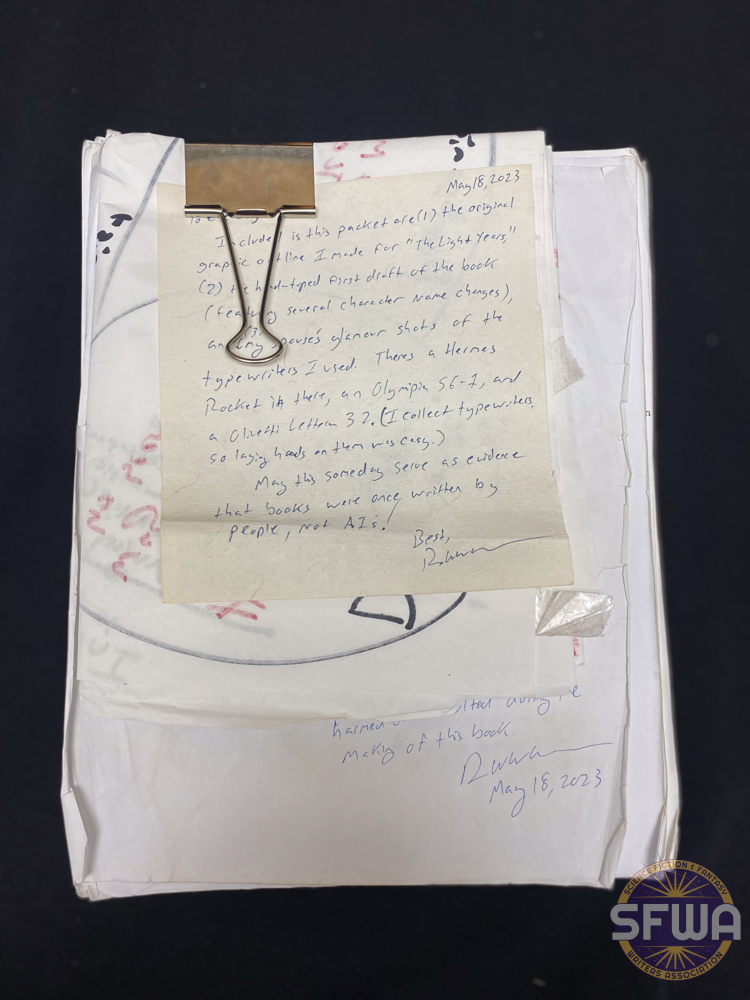 May 18, 2023
Included is this packet are (1) the original
graphic outline I made for "The Light Years,"
(2) the hand-typed first draft of the book
(featuring several character name changes),
and (3) my spouse's glamour shots of the
typewriters I used. Theres a Hermes
Rocket in there, an Olympia SG-1, and
a Olivetti Lettera 32. (I collect typewriters,
so laying hands on them was easy.)
May this someday serve as evidence
that books were once written by
people, not AIs!
Best,
harmed during the
making of this book.
May 18, 2023
SCIENCE FICTION & FANTASY
SFWA
WRITERS ASSOCIATION